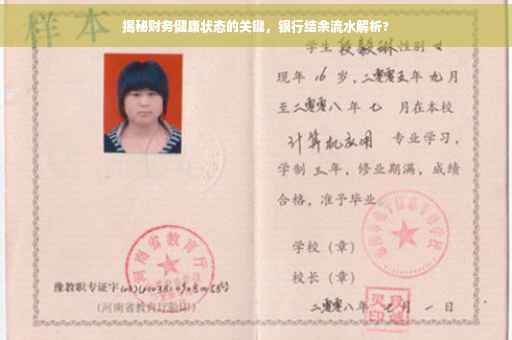 揭秘财务健康状态的关键，银行结余流水解析?
样本
学生段毅琳性别女
现年16岁，二零零五年九月
至二零零八年七月在本校
计算机应用 专业学习，
学制三年，修业期满，成绩
合格，准予毕业
学校（章）
校长（章）
二零零八年 月一日
河南省教育厅
豫教职专证字
（河南省教育厅验印）